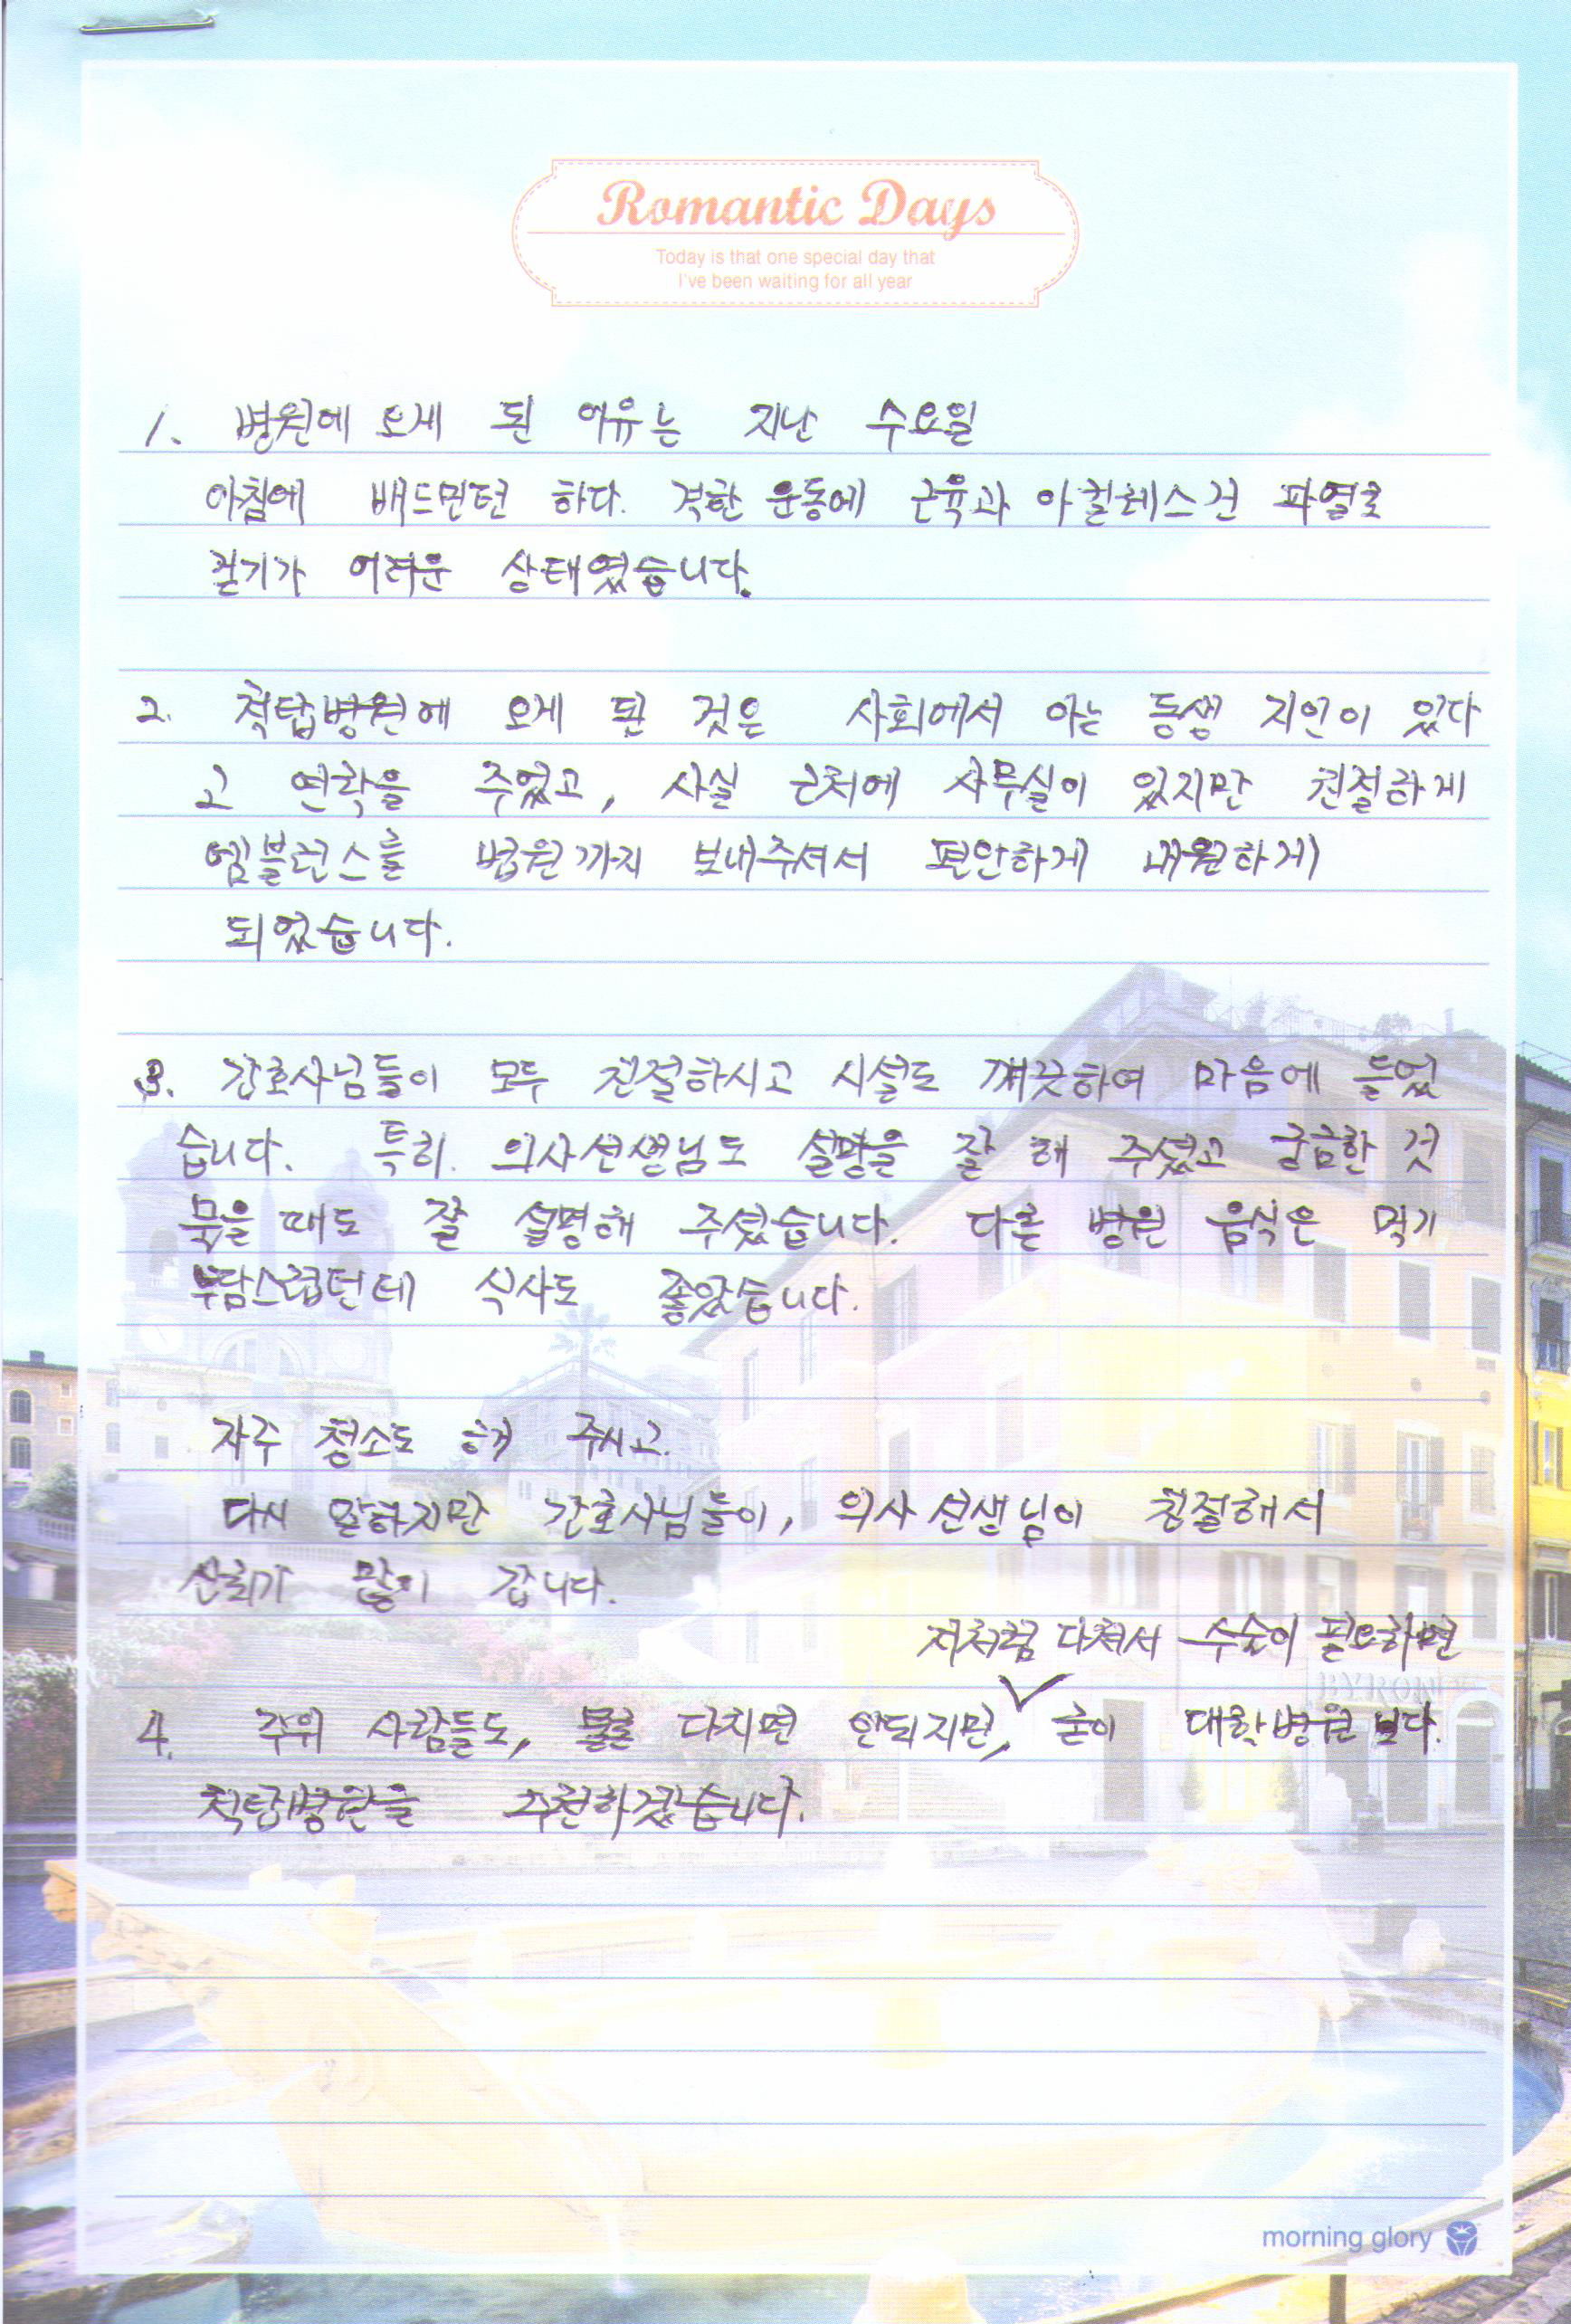 Romantic Days
Today is that one special day that
I've been waiting for all year
1. 병원에 오게 된 이유는 지난 수요일
아침에 배드민턴 하다. 격한 운동에 근육과 아킬레스건 파열로
걷기가 어려운 상태였습니다.
2. 척탑병원에 오게 된 것은 사회에서 아는 동생 지인이 있다
고 연락을 주었고, 사실 근처에 사무실이 있지만 친절하게
엠블런스를 병원까지 보내주셔서 편안하게 내원하게
되었습니다.
3. 간호사님들이 모두 친절하시고 시설도 깨끗하여 마음에 들었
습니다. 특히. 의사선생님도 설명을 잘 해 주셨고 궁금한 것
물을 때도 잘 설명해 주셨습니다. 다른 병원 음식은 먹기
부담스럽던데 식사도 좋았습니다.
자주 청소도 해 주시고.
다시 말하지만 간호사님들이, 의사 선생님이 친절해서
신뢰가 많이 갑니다.
저처럼 다쳐서 수술이 필요하면
4. 주위 사람들도, 물론 다치면 안되지만, 굳이 대학병원 보다.
척탑병원을 추천하겠습니다.
morning glory